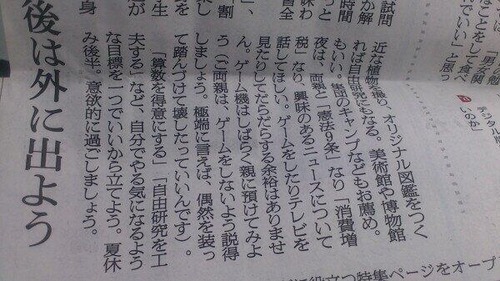 でいい」と思う
近な植物を撮り、オリジナル図鑑をつく
れば自由研究にもなる。美術館や博物館
もいい。集団のキャンプなどもお薦め。
夜は、両親と「憲法9条」なり「消費増
税」なり、興味のあるニュースについて
話してほしい。ゲームをしたりテレビを
見たりしてだらだらする余裕はありませ
ん。ゲーム機はしばらく親に預けてみよ
う（ご両親は、ゲームをしないよう説得
しましょう。極端に言えば、偶然を装っ
て踏んづけて壊したっていいんです）。
「算数を得意にする」「自由研究を工
夫する」など、自分でやる気になるよう
な目標を一つでいいから立てよう。夏休
み後半。意欲的に過ごしましょう。
後は外に出よう
に役立つ特集ページをオープ